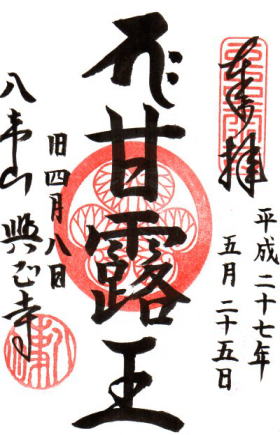 奉拝
平成二十七年
五月二十五日
甘露王
旧四月八日
八事山 興正寺